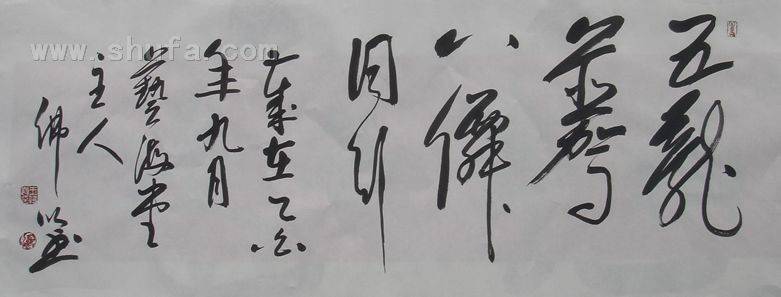 www.shufa.com
五龍
八僊
同行
歲在乙酉
年九月
藝海堂
主人
佛